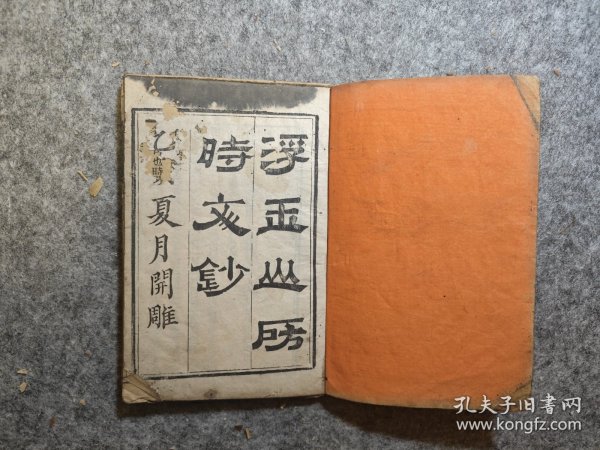 浮玉山房
時文鈔
乙
夏月開雕
孔夫子旧书网
www.kongfz.com